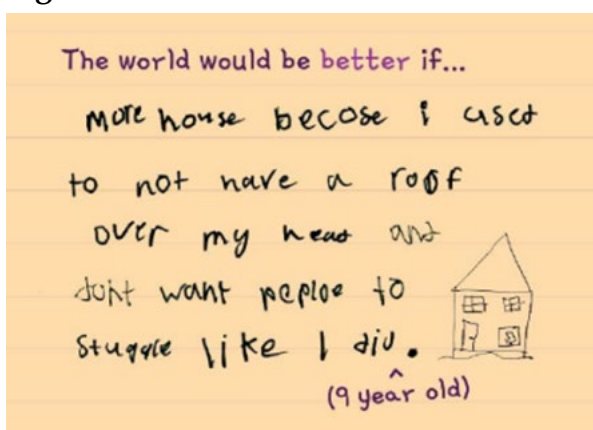 The world would be better if...
more house becose i used
to not have a roof
over my head and
dont want peploe to
stuggle like I did.
(9 year old)